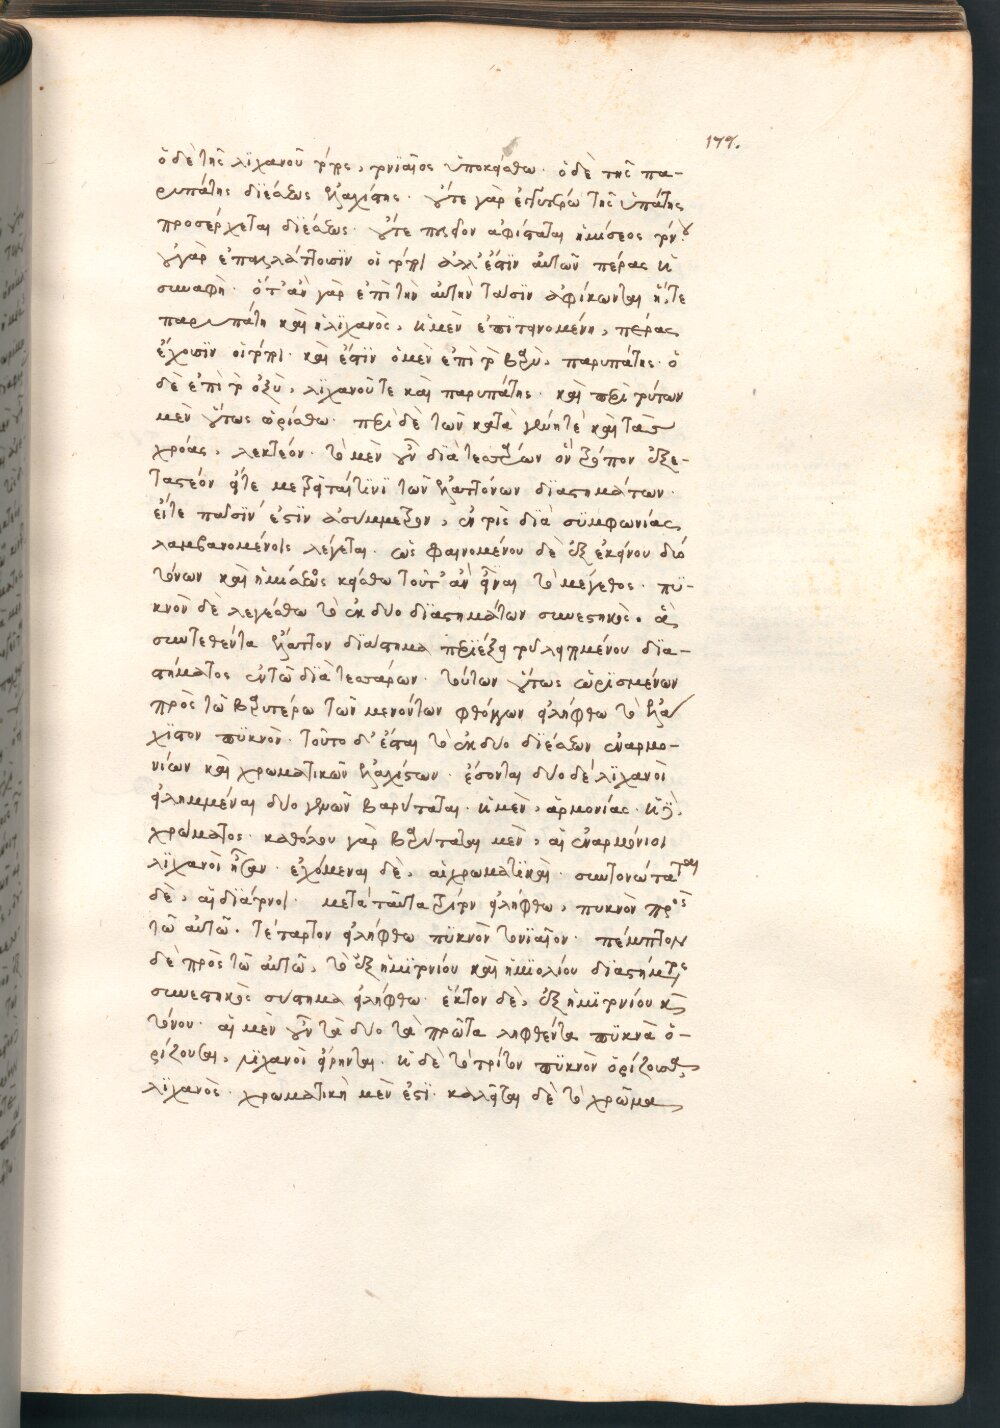 177.
ὁ δὲ τῆς λιχανοῦ τόπος, τονιαῖος ὑποκείσθω. ὁ δὲ τῆς πα-
ρυπάτης διέσεως ἐλαχίστης. οὔτε γὰρ ἐγγυτέρω τῆς ὑπάτης
προσέρχεται διέσεως. οὔτε πλεῖον ἀφίσταται ἡμίσεος τόνου.
οὐ γὰρ ἐπαλλάττουσιν οἱ τόποι ἀλλ' ἔστιν αὐτῶν πέρας ἡ
συναφή. ὅτ' ἂν γὰρ ἐπὶ τὴν αὐτὴν τάσιν ἀφίκωνται ἥ, τε
παρυπάτη καὶ ἡ λιχανὸς, ἡ μὲν ἐπιτεινομένη, πέρας
ἔχουσιν οἱ τόποι. καὶ ἔστιν ὁ μὲν ἐπὶ τὸ βαρὺ, παρυπάτης. ὁ
δὲ ἐπὶ τὸ ὀξὺ, λιχανοῦ τε καὶ παρυπάτης. καὶ περὶ τούτων
μὲν οὕτως ὁρίσθω. περὶ δὲ τῶν κατὰ γένη τὲ καὶ τὰς
χρόας, λεκτέον. τὸ μὲν οὖν διὰ τεσσάρων ὃν τρόπον ἐξε-
ταστέον εἴτε μετρεῖται τινὶ τῶν ἐλαττόνων διαστημάτων.
εἴτε πᾶσιν ἐστὶν ἀσυμμετρον, ἐν τοῖς διὰ συμφωνίας
λαμβανομένοις λέγεται. ὡς φαινομένου δὲ ἐξ ἐκείνου δύο
τόνων καὶ ἡμίσεως κείσθω τοῦτ' ἂν εἶναι τὸ μέγεθος. πυ-
κνὸν δὲ λεγέσθω τὸ ἐκ δυο διαστημάτων συνεστηκὸς. ἃ
συντεθέντα ἔλαττον διάστημα περιέξει τοῦ λειπομένου δια-
στήματος ἐν τῶ διὰ τεσσάρων. τούτων οὕτως ὡρισμένων
πρὸς τῶ βαρυτέρω τῶν μενόντων φθόγγων εἰλήφθω τὸ ἐλά
χιστον πυκνὸν. τοῦτο δ' ἔσται τὸ ἐκ δυο διέσεων ἐναρμο-
νίων καὶ χρωματικῶν ἐλαχίστων. ἔσονται δυο δὲ λιχανοὶ
εἰλημμέναι δυο γενῶν βαρύταται. ἡ μὲν, ἁρμονίας. ἡ δὲ.
χρώματος. καθόλου γὰρ βαρύταται μὲν, αἱ ἐναρμόνιοι
λιχανοὶ ἦσαν. ἐχόμεναι δὲ, αἱ χρωματικαὶ. συντονώταται
δὲ, αἱ διάτονοι. μετὰ ταῦτα τρίτον εἰλήφθω, πυκνὸν πρὸς
τῶ αὐτῶ. τέταρτον εἰλήφθω πυκνὸν τονιαῖον. πέμπτον
δὲ πρὸς τῶ αὐτῶ, τὸ ἐξ ἡμιτονίου καὶ ἡμιολίου διαστήματος
συνεστηκὸς σύστημα εἰλήφθω. ἕκτον δὲ, ἐξ ἡμιτονίου καὶ
τόνου. αἱ μὲν οὖν τὰ δυο τὰ πρῶτα ληφθέντα πυκνὰ ὁ-
ρίζουσαι, λιχανοὶ εἴρηνται. ἡ δὲ τὸ τρίτον πυκνὸν ὁρίζουσα
λιχανὸς. χρωματικὴ μὲν ἐστι. καλεῖται δὲ τὸ χρῶμα